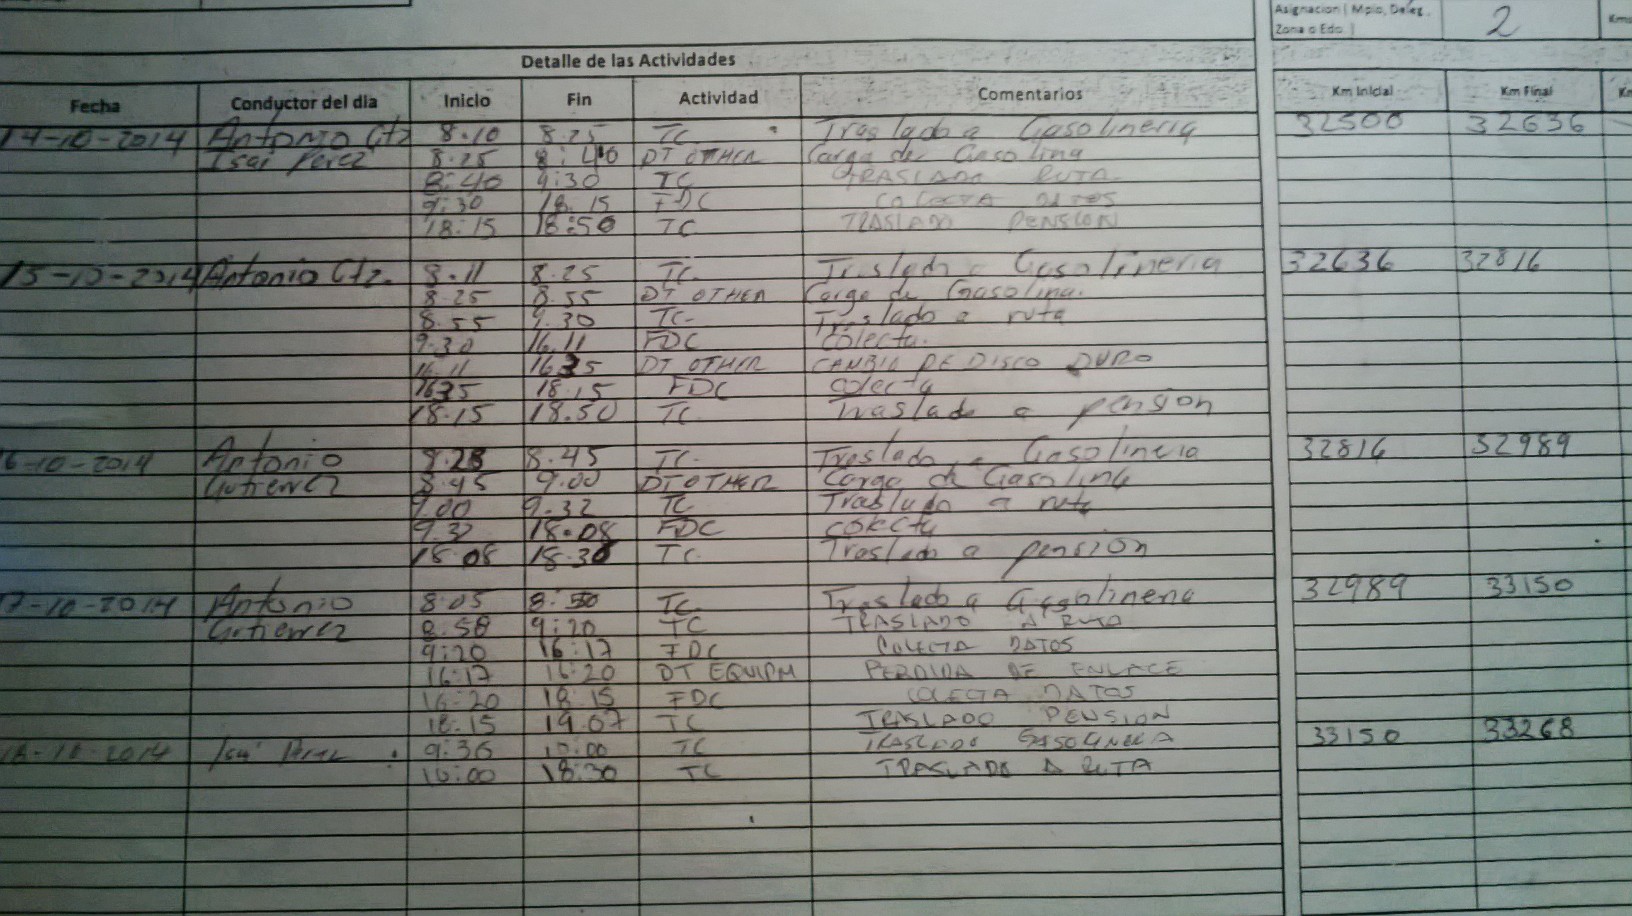 Asignacion ( Mpio, Deleg, Zona o Edo. ) 2 Kms
Detalle de las Actividades
Fecha Conductor del dia Inicio Fin Actividad Comentarios Km Inicial Km Final
14-10-2014 Antonio Gtz 8.10 8.25 TC Traslado a Gasolineria 32500 32636
Isai Perez 8.25 8:40 DT OTHER Carga de Gasolina
8:40 9:30 TC TRASLADO RUTA
9:30 18.15 FDC COLECTA DATOS
18:15 18:50 TC TRASLADO PENSION
15-10-2014 Antonio Gtz. 8.11 8.25 TC. Traslado a Gasolineria 32636 32816
8.25 8.55 DT OTHER Carga de Gasolina.
8.55 9.30 TC- Traslado a ruta
9.30 16.11 FDC colecta.
16.11 1635 DT OTHER CAMBIO DE DISCO DURO
1635 18.15 FDC colecta
18.15 18.50 TC. Traslado a pension
6-10-2014 Antonio 8.28 8.45 TC. Traslado a Gasolineria 32816 32989
Gutierrez 8.45 9.00 DT OTHER Carga de Gasolina
9.00 9.32 TC Traslado a ruta
9.32 18.08 FDC colecta
18.08 18.30 TC. Traslado a pension
7-10-2014 Antonio 8.05 8:50 TC. Traslado a Gasolineria 32989 33150
Gutierrez 8:58 9:20 TC TRASLADO A RUTA
9:20 16:17 FDC COLECTA DATOS
16:17 16:20 DT EQUIPM PERDIDA DE ENLACE
16:20 18:15 FDC COLECTA DATOS
18:15 19:07 TC TRASLADO PENSION
18-10-2014 Isai Perez 9:36 10:00 TC TRASLADO GASOLINERA 33150 33268
10:00 18:30 TC TRASLADO A RUTA